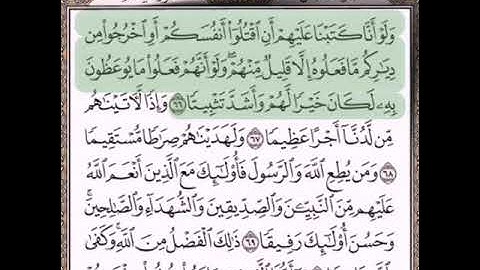 وَلَوْ أَنَّا كَتَبْنَا عَلَيْهِمْ أَنِ ٱقْتُلُوٓا۟ أَنفُسَكُمْ أَوِ ٱخْرُجُوا۟ مِن
دِيَٰرِكُم مَّا فَعَلُوهُ إِلَّا قَلِيلٌ مِّنْهُمْ ۖ وَلَوْ أَنَّهُمْ فَعَلُوا۟ مَا يُوعَظُونَ
بِهِۦ لَكَانَ خَيْرًا لَّهُمْ وَأَشَدَّ تَثْبِيتًا ٦٦ وَإِذًا لَّـَٔاتَيْنَٰهُم
مِّن لَّدُنَّآ أَجْرًا عَظِيمًا ٦٧ وَلَهَدَيْنَٰهُمْ صِرَٰطًا مُّسْتَقِيمًا
٦٨ وَمَن يُطِعِ ٱللَّهَ وَٱلرَّسُولَ فَأُو۟لَٰٓئِكَ مَعَ ٱلَّذِينَ أَنْعَمَ ٱللَّهُ
عَلَيْهِم مِّنَ ٱلنَّبِيِّـۧنَ وَٱلصِّدِّيقِينَ وَٱلشُّهَدَآءِ وَٱلصَّٰلِحِينَ ۚ
وَحَسُنَ أُو۟لَٰٓئِكَ رَفِيقًا ٦٩ ذَٰلِكَ ٱلْفَضْلُ مِنَ ٱللَّهِ ۚ وَكَفَىٰ